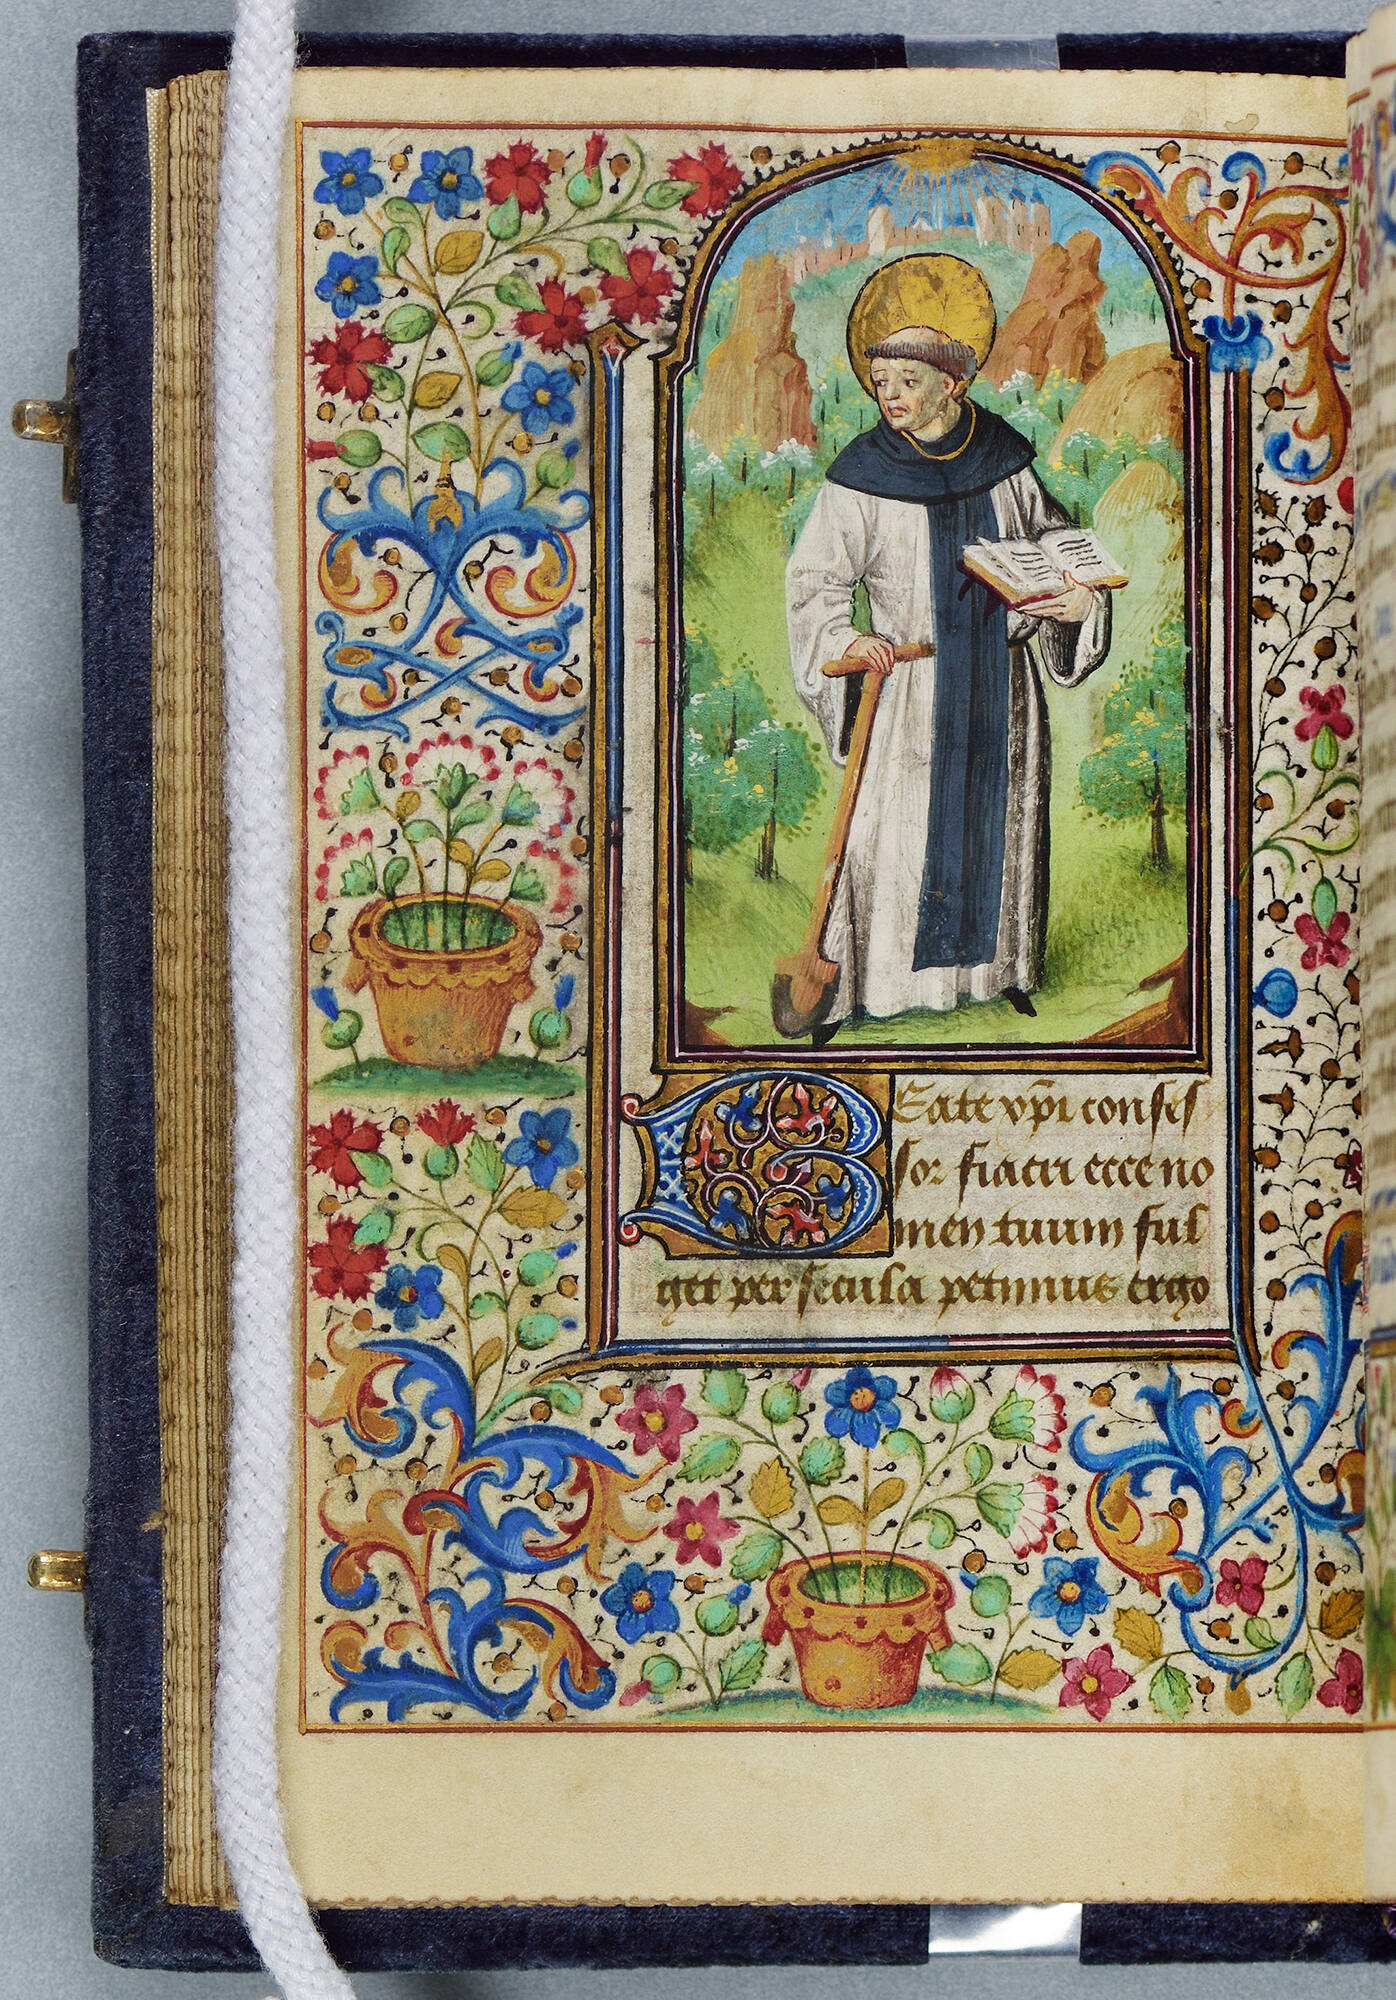 Beate xp̄i confes
sor fiacri ecce no
men tuum ful
get per secula petimus ergo